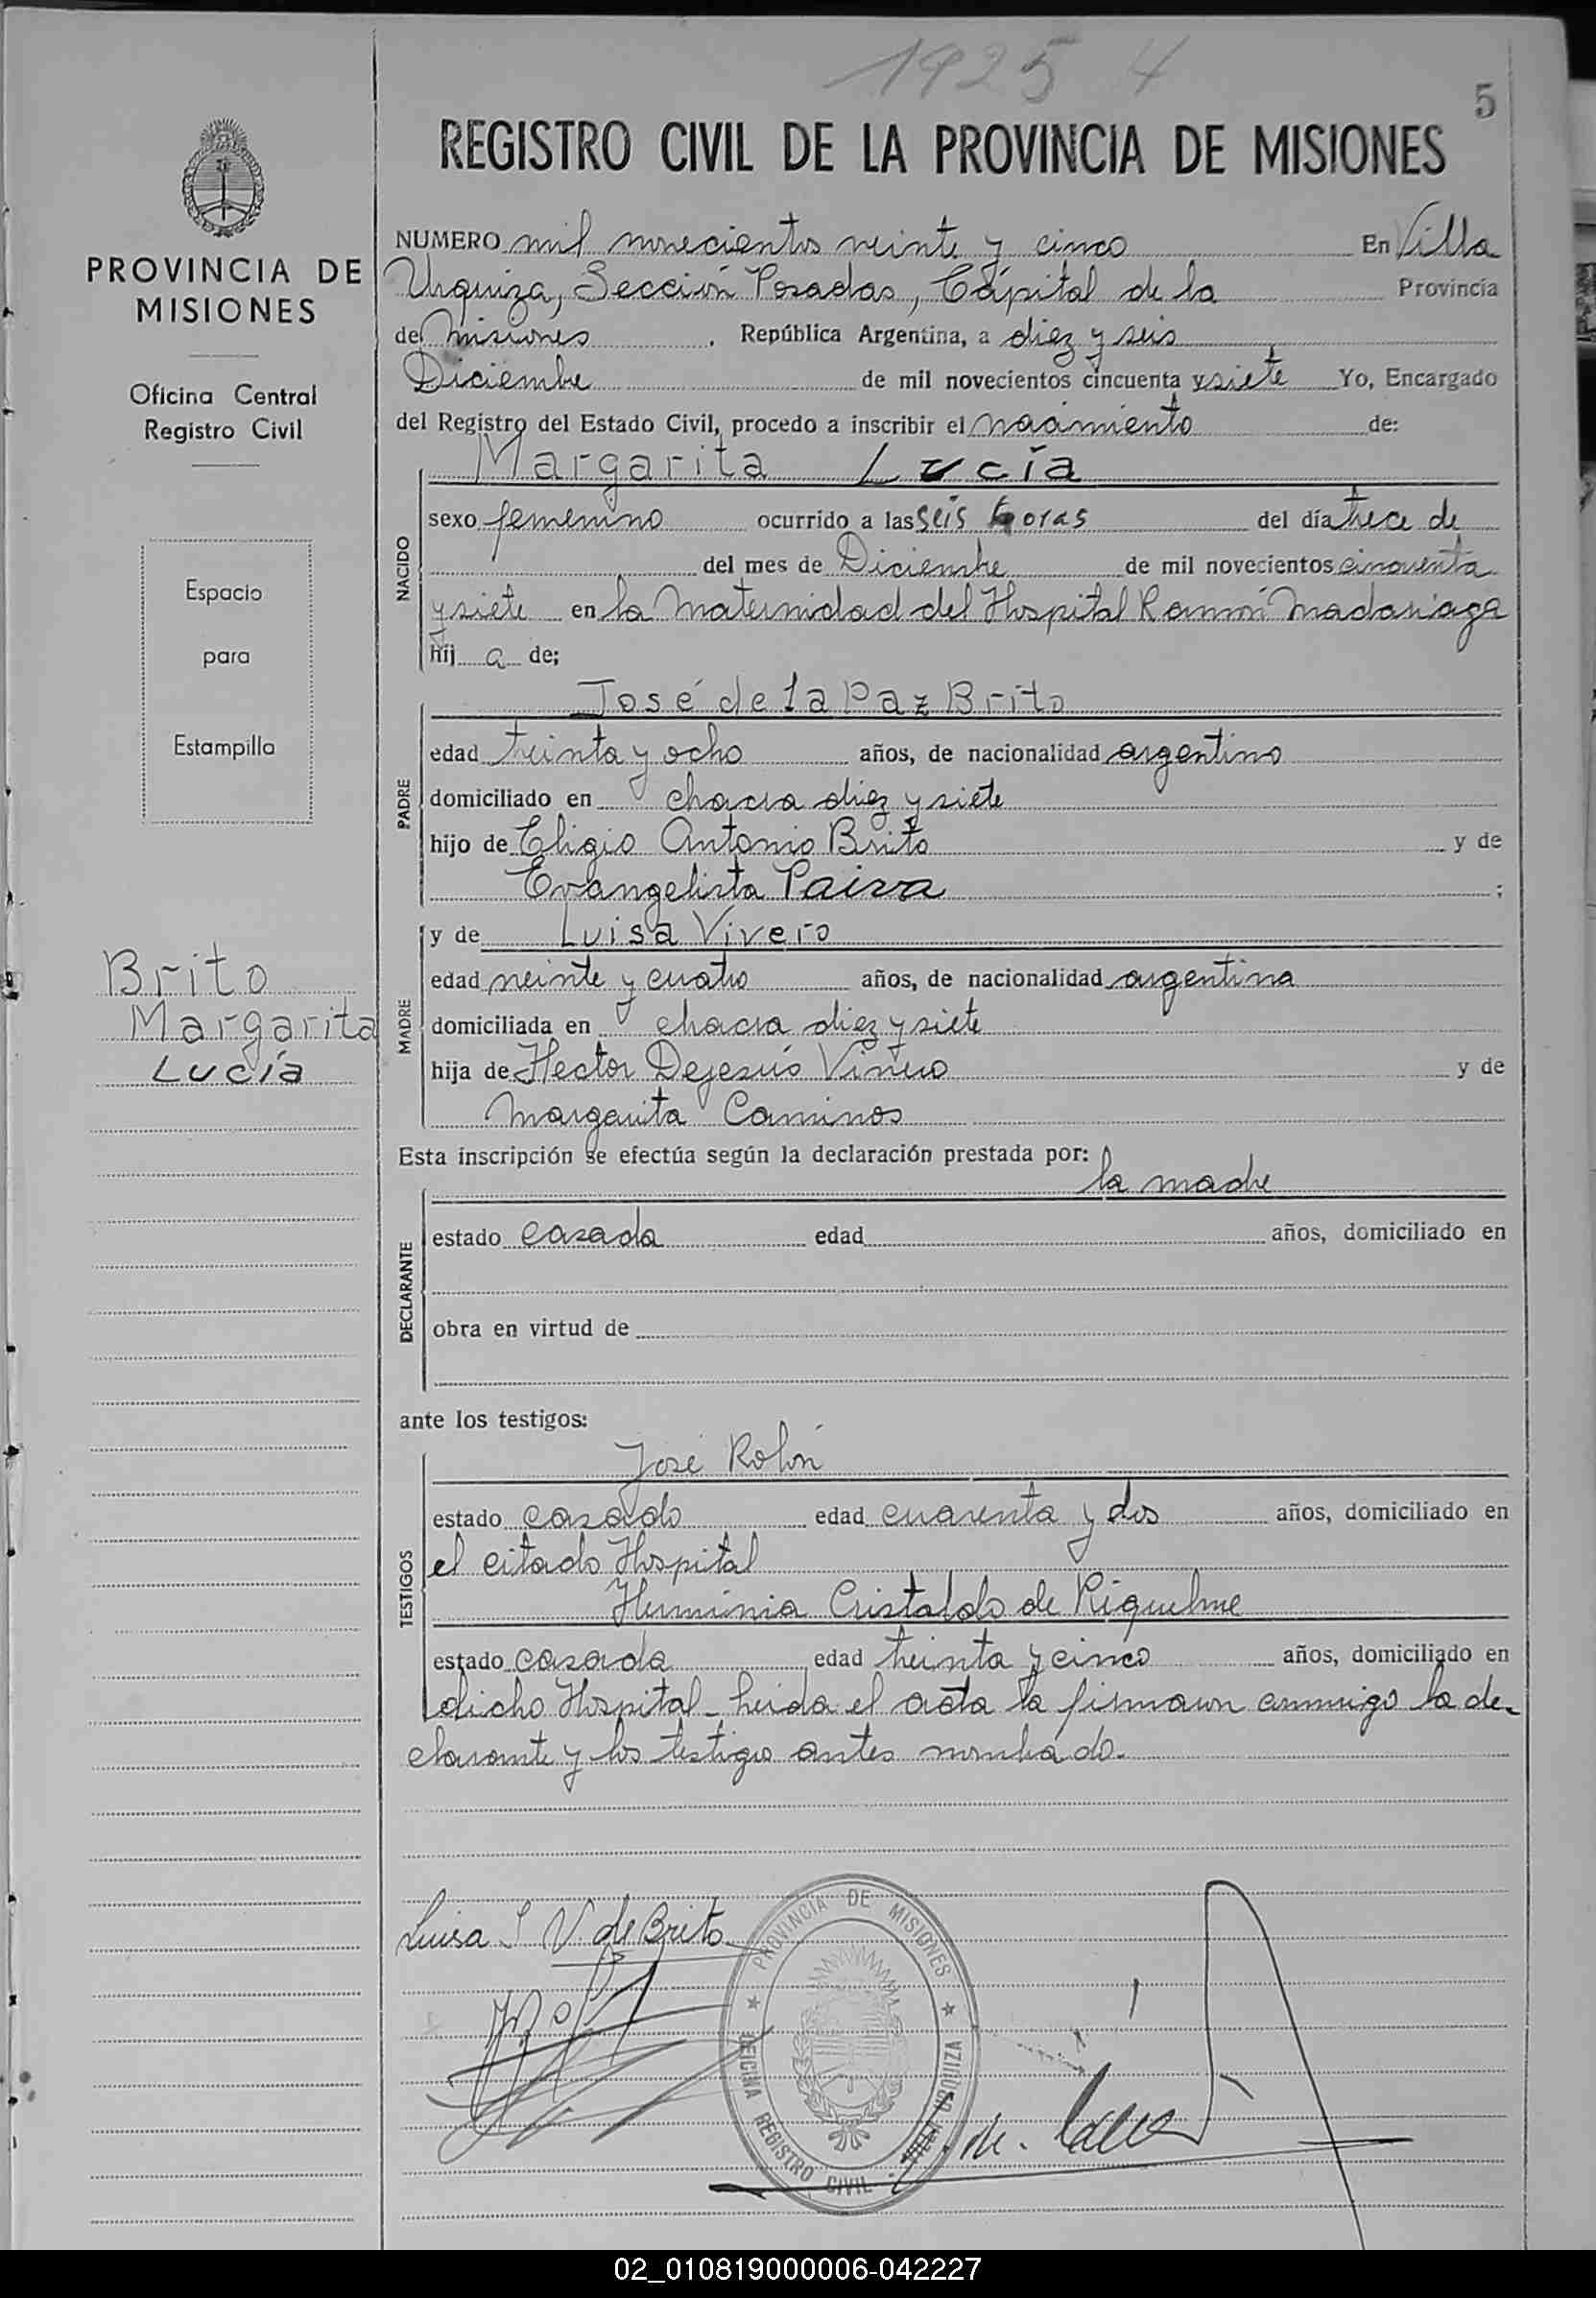 1925 4
5
REGISTRO CIVIL DE LA PROVINCIA DE MISIONES
PROVINCIA DE
MISIONES
Oficina Central
Registro Civil
Espacio
para
Estampilla
Brito
Margarita
Lucía
NUMERO mil novecientos veinte y cinco En Villa
Urquiza, Sección Posadas, Cápital de la Provincia
de Misiones, República Argentina, a diez y seis
Diciembre de mil novecientos cincuenta y siete Yo, Encargado
del Registro del Estado Civil, procedo a inscribir el nacimiento de:
Margarita Lucía
NACIDO
sexo femenino ocurrido a las seis horas del día trece de
del mes de Diciembre de mil novecientos cincuenta
y siete en la Maternidad del Hospital Ramón Madariaga
hij a de;
José de la Paz Brito
PADRE
edad treinta y ocho años, de nacionalidad argentino
domiciliado en chacra diez y siete
hijo de Eligio Antonio Brito y de
Evangelista Paiva ;
MADRE
y de Luisa Vivero
edad veinte y cuatro años, de nacionalidad argentina
domiciliada en chacra diez y siete
hija de Hector Dejesús Vivero y de
Margarita Caminos
Esta inscripción se efectúa según la declaración prestada por:
la madre
DECLARANTE
estado casada edad años, domiciliado en
obra en virtud de
ante los testigos:
José Rolón
TESTIGOS
estado casado edad cuarenta y dos años, domiciliado en
el citado Hospital
Herminia Cristaldo de Riquelme
estado casada edad treinta y cinco años, domiciliado en
dicho Hospital - heida el acta la firmaron conmigo la de-
clarante y los testigos antes nombrado.
Luisa S V. de Brito
PROVINCIA DE MISIONES
OFICINA REGISTRO CIVIL - VILLA URQUIZA
02_010819000006-042227